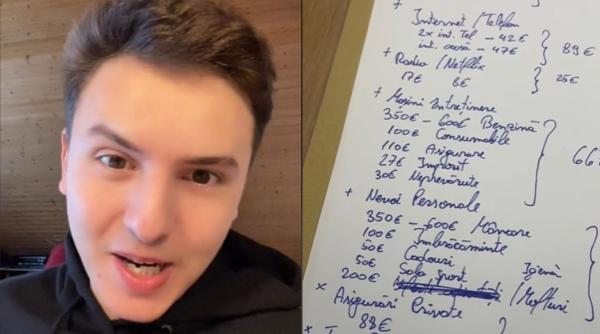 + Internet / Telefon
2x int. Tel – 42€
int. casă – 47€
89€
+ Radio / Netflix
17€ 8€
25€
+ Mașini Întreținere
350€ – 600€ Benzină
100€ Consumabile
110€ Asigurare
27€ Impozit
30€ Neprevăzute
66
+ Nevoi Personale
350€ – 600€ Mâncare
100€ Îmbrăcăminte
50€ Cadouri
50€ Sala sport Igienă
200€ / Mofturi
× Asigurări Private
88€